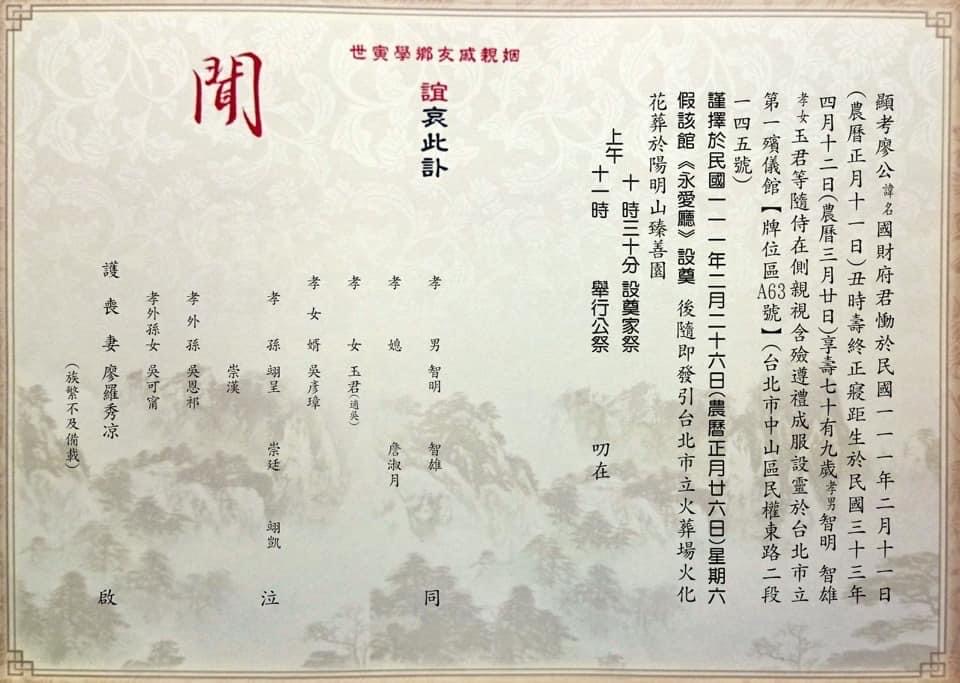 顯考廖公諱名國財府君慟於民國一一一年二月十一日
(農曆正月十一日)丑時壽終正寢距生於民國三十三年
四月十二日(農曆三月廿日)享壽七十有九歲孝男智明 智雄
孝女玉君等隨侍在側親視含殮遵禮成服設靈於台北市立
第一殯儀館【牌位區A63號】(台北市中山區民權東路二段
一四五號)
謹擇於民國一一一年二月二十六日(農曆正月廿六日)星期六
假該館《永愛廳》設奠 後隨即發引台北市立火葬場火化
花葬於陽明山臻善園
上午 十時三十分 設奠家祭
十一時 舉行公祭
叨在
姻親戚友鄉學寅世
誼哀此訃
聞
孝男 智明 智雄
孝媳 詹淑月
孝女 玉君(適吳)
孝女婿 吳彥璋
孝孫 翊呈 崇廷 翊凱
崇漢
孝外孫 吳恩祁
孝外孫女 吳可甯
護喪妻 廖羅秀凉
(族繁不及備載)
同
泣
啟